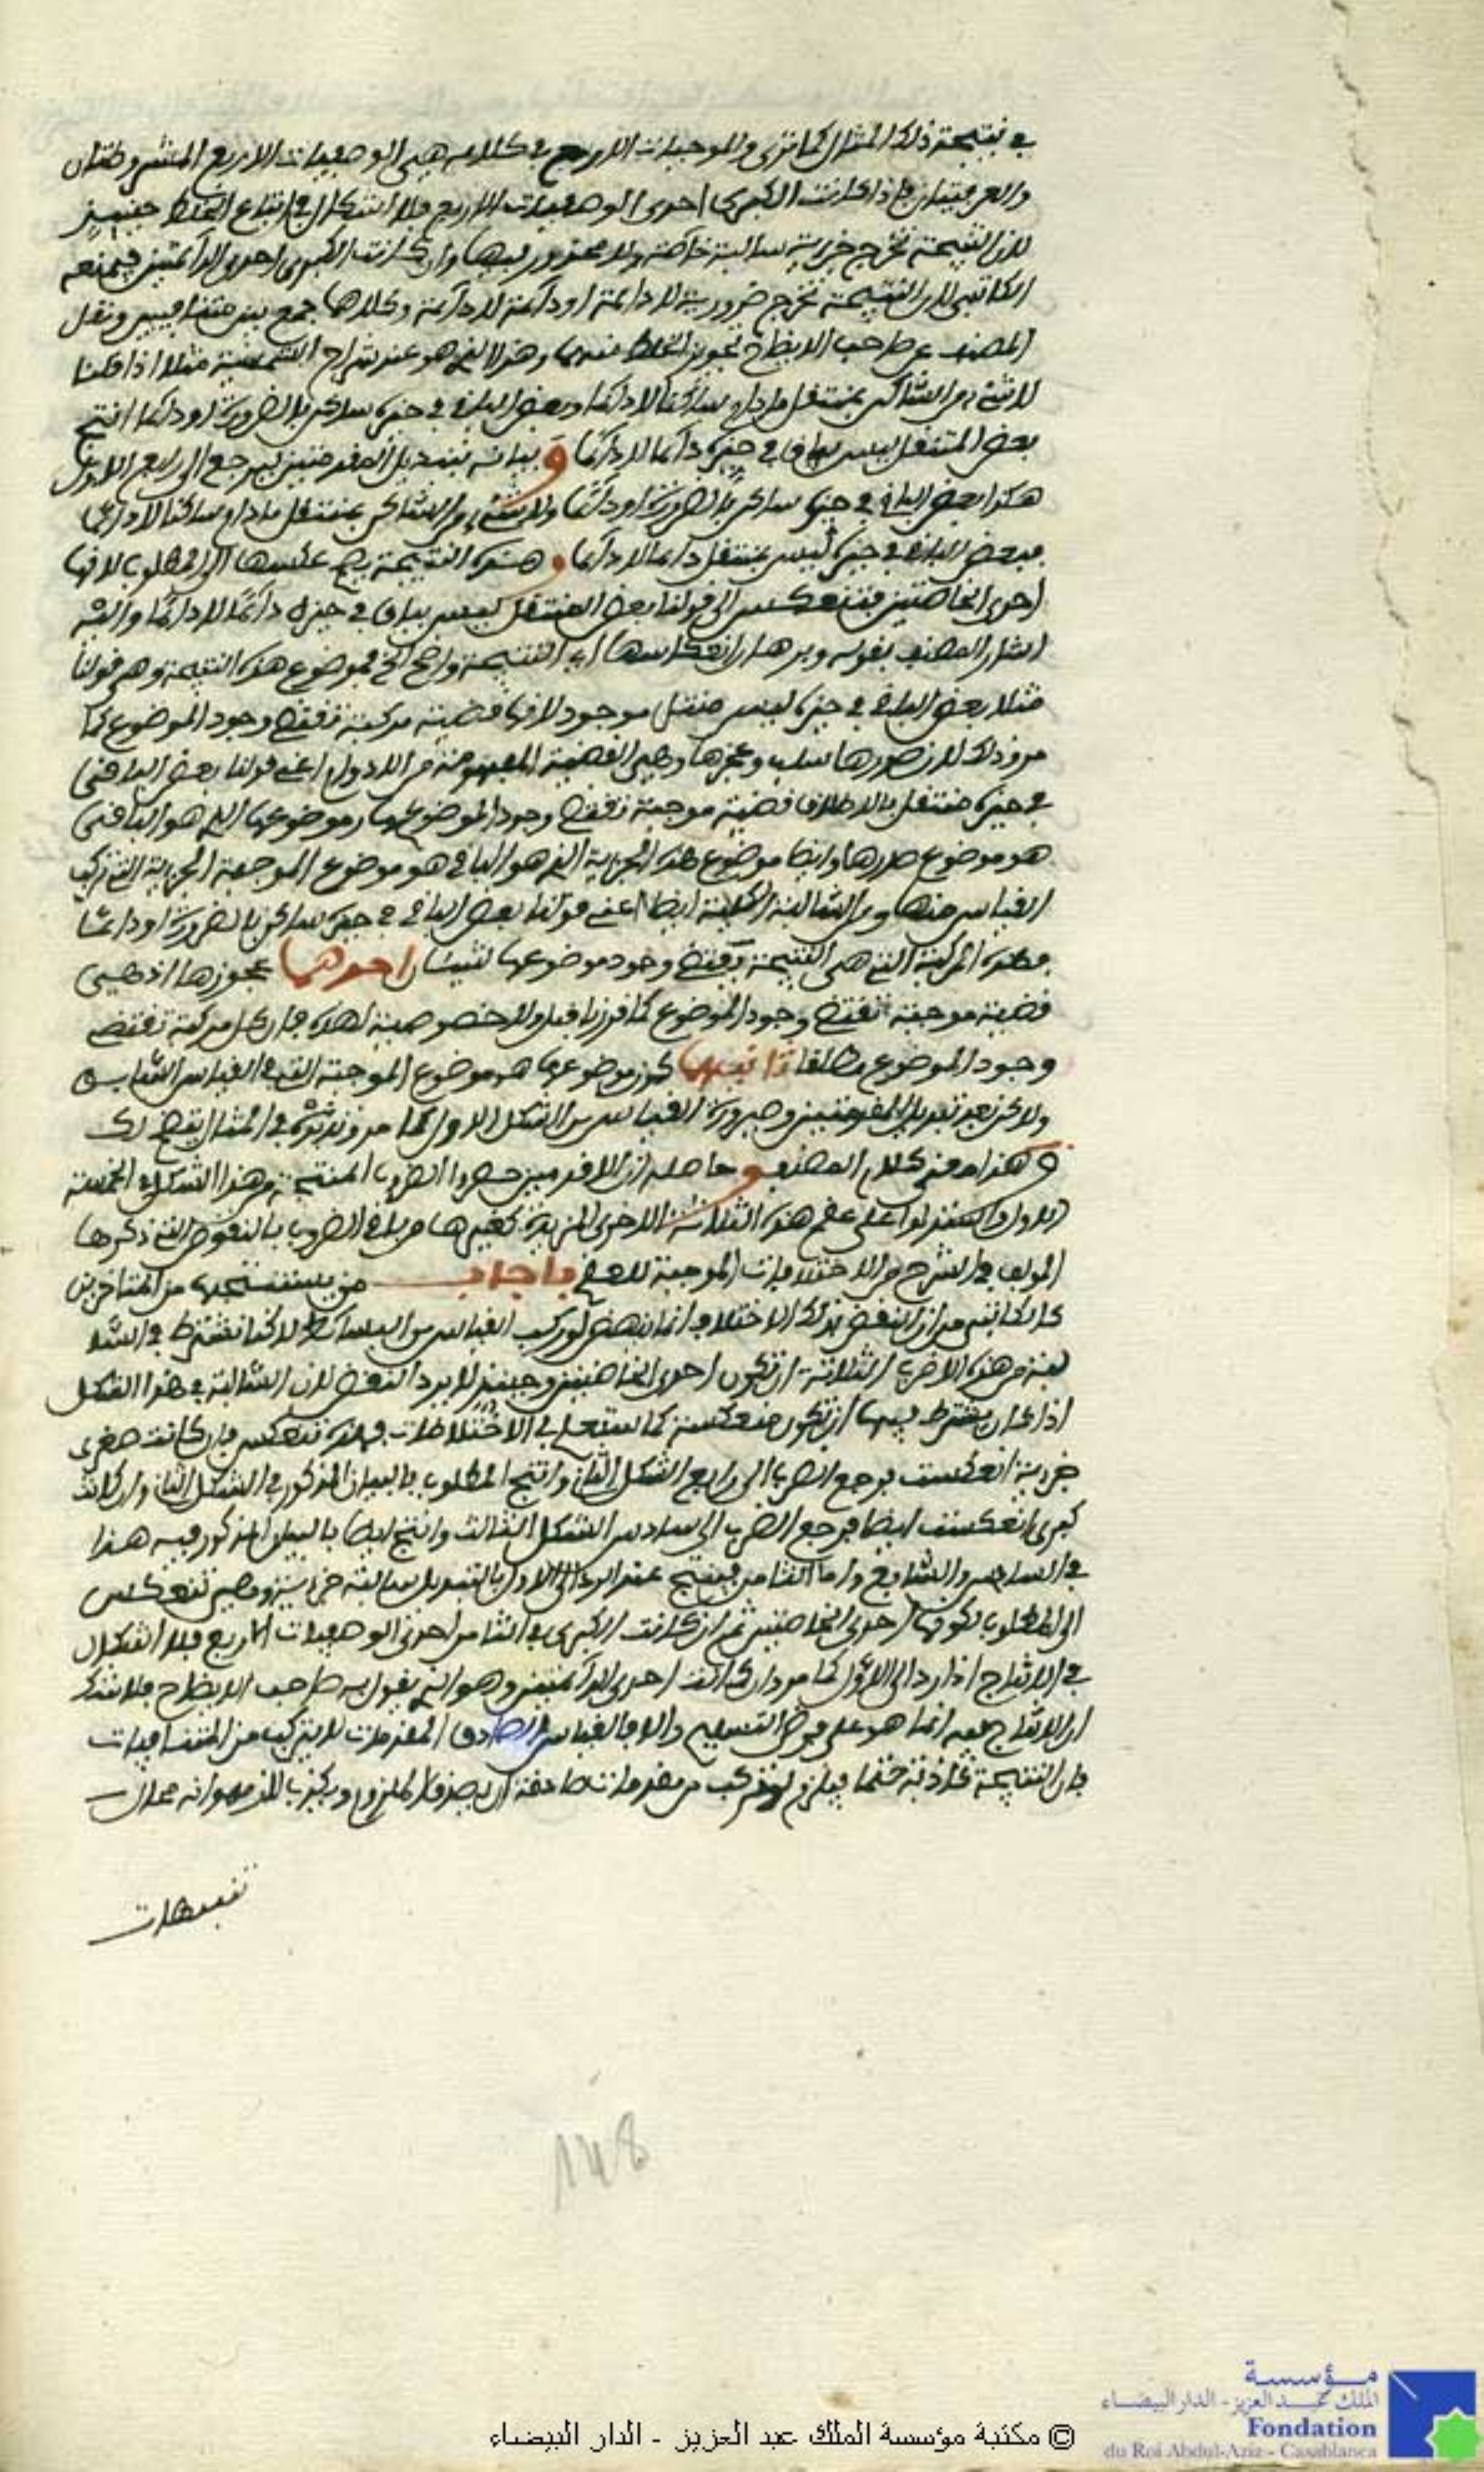 في نتيجة ذلك المثال كما ترى والموجبات الاربع في كلامه هي الوصفيات الاربع المشروطتان
والعرفيتان فاذا كانت الكبرى احدى الوصفيات الاربع فلا اشكال في انتاج الخلط حينئذ
لان النتيجة تخرج جزئية سالبة خاصة ولا محذور فيها وان كانت الكبرى احدى الدائمتين فيمنعه
الكاتبي لان النتيجة تخرج ضرورية لا دائمة او دائمة لا دائمة وكلاهما جمع بين متنافيين ونقل
المصنف عن صاحب الايضاح تجويز الخلط منهما وهذا الذي هو عند شراح الشمسية مثلا اذا قلنا
لا شيء من الساكن بمنتقل ما دام ساكنا لا دائما وبعض الباقي في حيزه ساكن بالضرورة او دائما انتج
بعض المنتقل ليس بباق في حيزه دائما لا دائما و بيانه بتبديل المقدمتين ليرجع الى رابع الاول
هكذا بعض الباقي في حيزه ساكن بالضرورة او دائما ولا شيء من الساكن بمنتقل ما دام ساكنا لا دائما
فبعض الباقي في حيزه ليس بمنتقل دائما لا دائما و هذه النتيجة يصح عكسها الى المطلوب لانها
احدى الخاصتين فتنعكس الى قولنا بعض المنتقل ليس بباق في حيزه دائما لا دائما واليه
اشار المصنف بقوله وبرهان انعكاسها اي النتيجة واضح الخ فموضوع هذه النتيجة وهي قولنا
مثلا بعض الباقي في حيزه ليس منتقل موجود لانها قضية مركبة تقتضي وجود الموضوع كما
مر وذلك لان صدرها سلب وعجزها وهي القضية المفهومة من اللادوام اعني قولنا بعض الباقي
في حيزه منتقل بالاطلاق قضية موجبة تقتضي وجود الموضوع لها وموضوعها الذي هو الباقي
هو موضوع صدرها وايضا موضوع هذه الجزئية الذي هو الباقي هو موضوع الموجبة الجزئية التي تركب
القياس منها ومن السالبة الكلية ايضا اعني قولنا بعض الباقي في حيزه ساكن بالضرورة او دائما
فهذه المركبة التي هي النتيجة يقتضي وجود موضوعها لشيئان احدهما عجزها اذ هي
قضية موجبة تقتضي وجود الموضوع كما قررنا قبل ولا خصوصية لهذه فان كل مركبة تقتضي
وجود الموضوع مطلقا ثانيهما كون موضوعها هو موضوع الموجبة التي في القياس السابق
ولاكن بعد تبديل المقدمتين وصيرورة القياس من الشكل الاول كما مر وتدبره في المثال يتضح لك
و هذا معنى كلام المصنف و حاصله ان الاقدمين حصروا الضروب المنتجة من هذا الشكل في الخمسة
الاول واستدلوا على عقم هذه الثلاثة الاخرى المزيدة كغيرها من باقي الضروب بالنقوض التي ذكرها
المولف في الشرح من الاختلافات الموجبة للعقم فاجاب من يستنتجها من المتاخرين
كالكاتبي من ان النقض بذلك الاختلاف انما ينهض لو ركب القياس من البسائط لاكنا نشترط في السا
لبة من هذه الاضرب الثلاثة ان تكون احدى الخاصتين وحينئذ لا يرد النقض لان السالبة في هذا الشكل
اذا كان يشترط فيها ان تكون منعكسة كما ستعلم في الاختلاطات فهذه تنعكس فان كانت صغرى
جزئية انعكست فرجع الضرب الى رابع الشكل الثاني وانتج المطلوب بالبيان المذكور في الشكل الثاني وان كانت
كبرى انعكست ايضا فرجع الضرب الى سادس الشكل الثالث وانتج ايضا بالبيان المذكور فيه هذا
في السادس والسابع واما الثامن فينتج عند الرد الى الاول بالتبديل سالبة جزئية وهي تنعكس
الى المطلوب لكونها احدى الخاصتين ثم ان كانت الكبرى في الثامن احدى الوصفيات الاربع فلا اشكال
في الانتاج اذا رد الى الاول كما مر وان كانت احدى الدائمتين وهو الذي يقول به صاحب الايضاح فلا شك
ان الانتاج فيه انما هو على فرض التسليم والا فالقياس الصادق المقدمات لا يتركب من المتنافيات
فان النتيجة كاذبة حتما فيلزم لو تركب من مقدمات صادقة ان يصدق الملزوم ويكذب اللازم وانه محال
تنبيهات
148
© مكتبة مؤسسة الملك عبد العزيز - الدار البيضاء
مؤسسة
الملك عبد العزيز - الدار البيضاء
Fondation
du Roi Abdul-Aziz - Casablanca